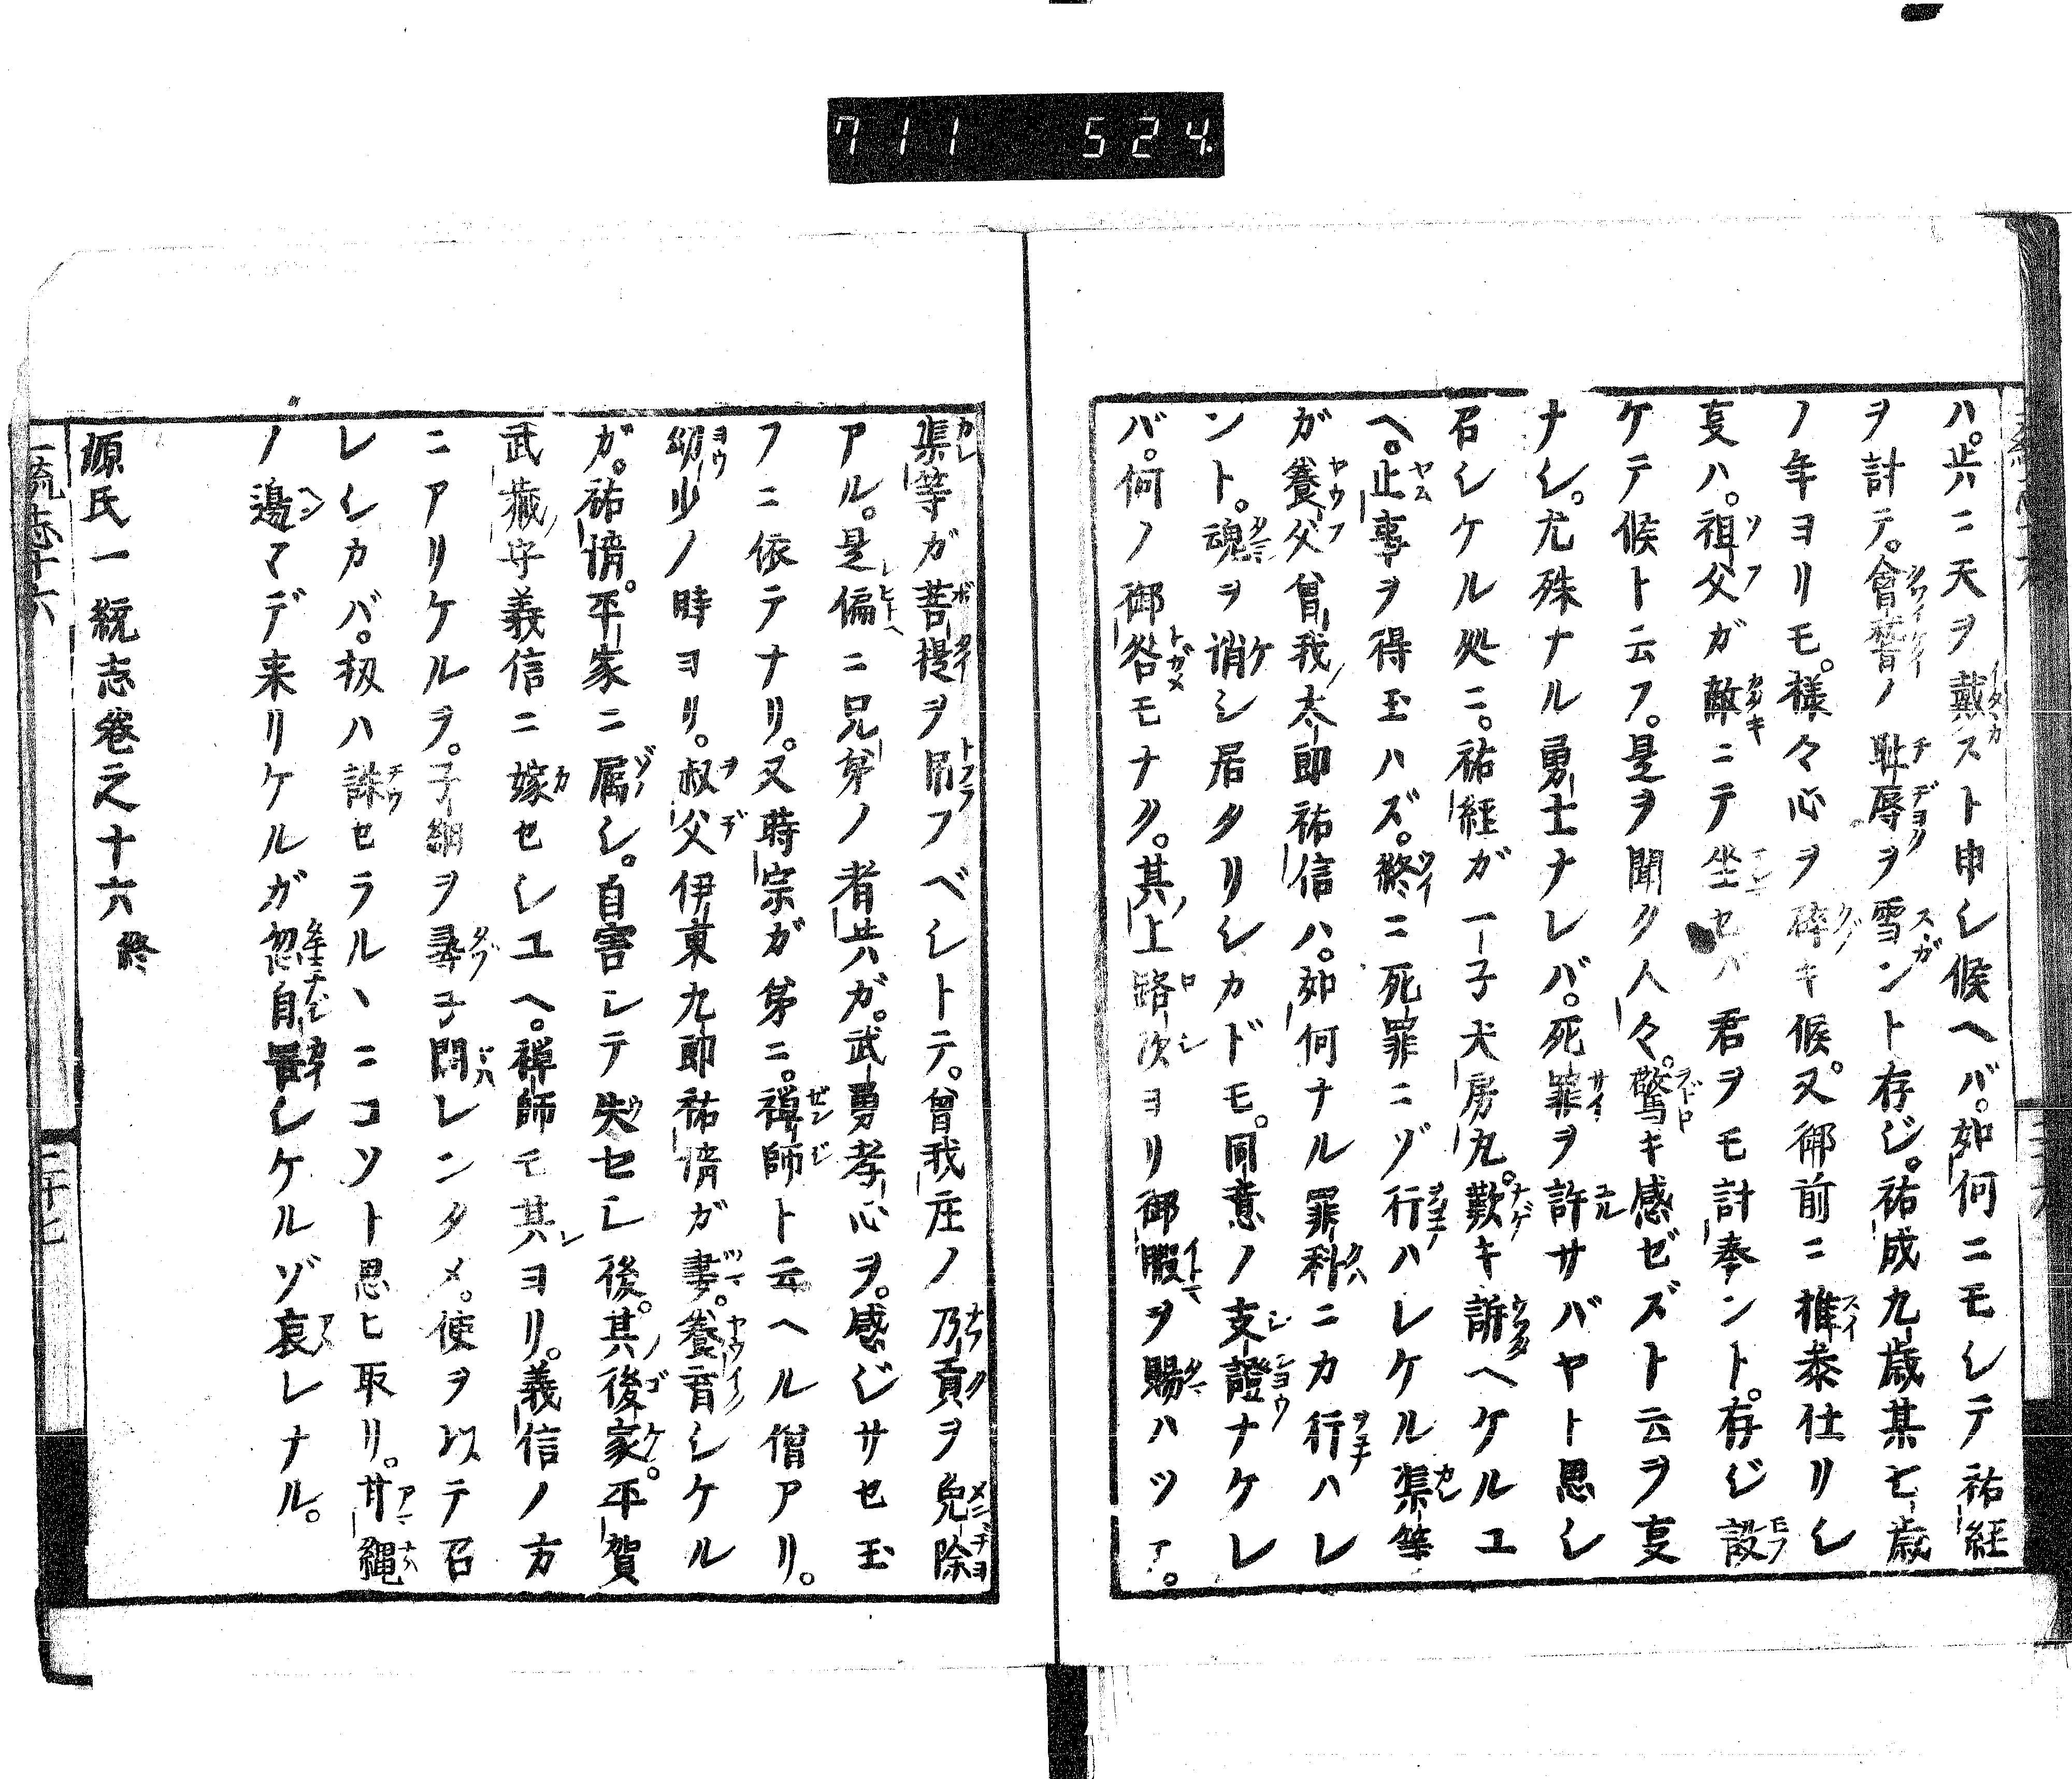 711 524
ハ。共ニ天ヲ戴スト申シ候ヘバ。如何ニモシテ祐経
ヲ計テ。會誓ノ耻辱ヲ雪ント存ジ。祐成九歳某七歳
ノ年ヨリモ。様々心ヲ碎キ候。又御前ニ推泰仕リシ
㕝ハ。祖父ガ敵ニテ坐セバ君ヲモ討奉ント。存ジ設
ケテ候ト云フ。是ヲ聞ク人々。驚キ感ゼズト云ヲ㕝
ナシ。尤殊ナル勇士ナレバ。死罪ヲ許サバヤト思シ
召シケル処ニ。祐経ガ一子犬房丸。歎キ訴ヘケルユ
ヘ。止事ヲ得玉ハズ。終ニ死罪ニゾ行ハレケル渠等
ガ養父曾我太郎祐信ハ。如何ナル罪科ニカ行ハレ
ント。魂ヲ消シ居タリシカドモ。同意ノ支證ナケレ
バ。何ノ御咎モナク。其上路次ヨリ御暇ヲ賜ハツア。
渠等ガ菩提ヲ吊フベシトテ。曾我庄ノ乃貢ヲ免除
アル。是偏ニ兄弟ノ者共ガ。武勇孝心ヲ。感ジサセ玉
フニ依テナリ。又時宗ガ弟ニ。禅師ト云ヘル僧アリ。
幼少ノ時ヨリ。叔父伊東九郎祐情ガ妻。養育シケル
ガ。祐情。平家ニ属シ。自害シテ失セシ後。其後家。平賀
武蔵守義信ニ嫁セシユヘ。禅師モ其ヨリ。義信ノ方
ニアリケルヲ。子細ヲ尋子問レンタメ。使ヲ以テ召
レシカバ。扨ハ誅セラルヽニコソト思ヒ取リ。甘縄
ノ邊マデ来リケルガ忽自害シケルゾ哀レナル。
源氏一統志巻之十六 終